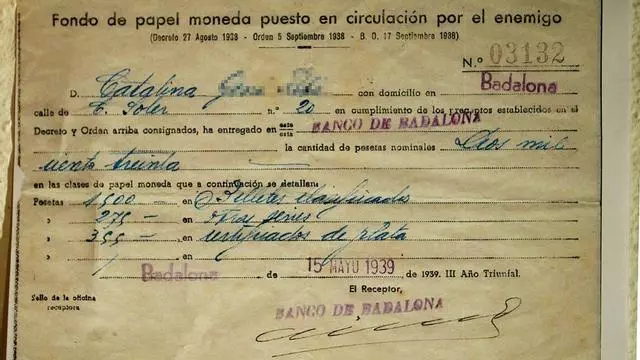 Fondo de papel moneda puesto en circulación por el enemigo
(Decreto 27 Agosto 1938 - Orden 5 Septiembre 1938 - B. O. 17 Septiembre 1938)
N.º 03132
D. Catalina con domicilio en Badalona
calle de E. Soler n.º 20 en cumplimiento de los preceptos establecidos en el
Decreto y Orden arriba consignados, ha entregado en BANCO DE BADALONA
la cantidad de pesetas nominales Dos mil
ciento treinta
en las clases de papel moneda que a continuación se detallan:
Pesetas 1,500 — en Billetes clasificados
» 275 — en
» 355 — en certificados de plata
» en
Badalona de 15 MAYU 1939 de 1939. III Año Triunfal.
El Receptor,
Sello de la oficina
receptora
BANCO DE BADALONA